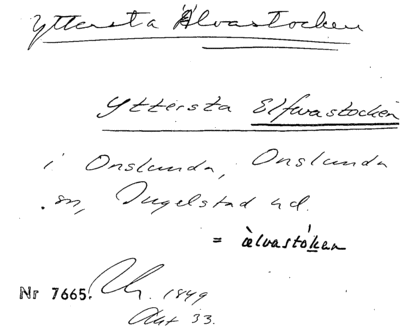 Yttersta Älvastocken
Yttersta Elfwastocken
i Onslunda, Onslunda
sn, Ingelstad hd.
= àlvastókan
Nr 7665. Ch. 1849
Akt 33.